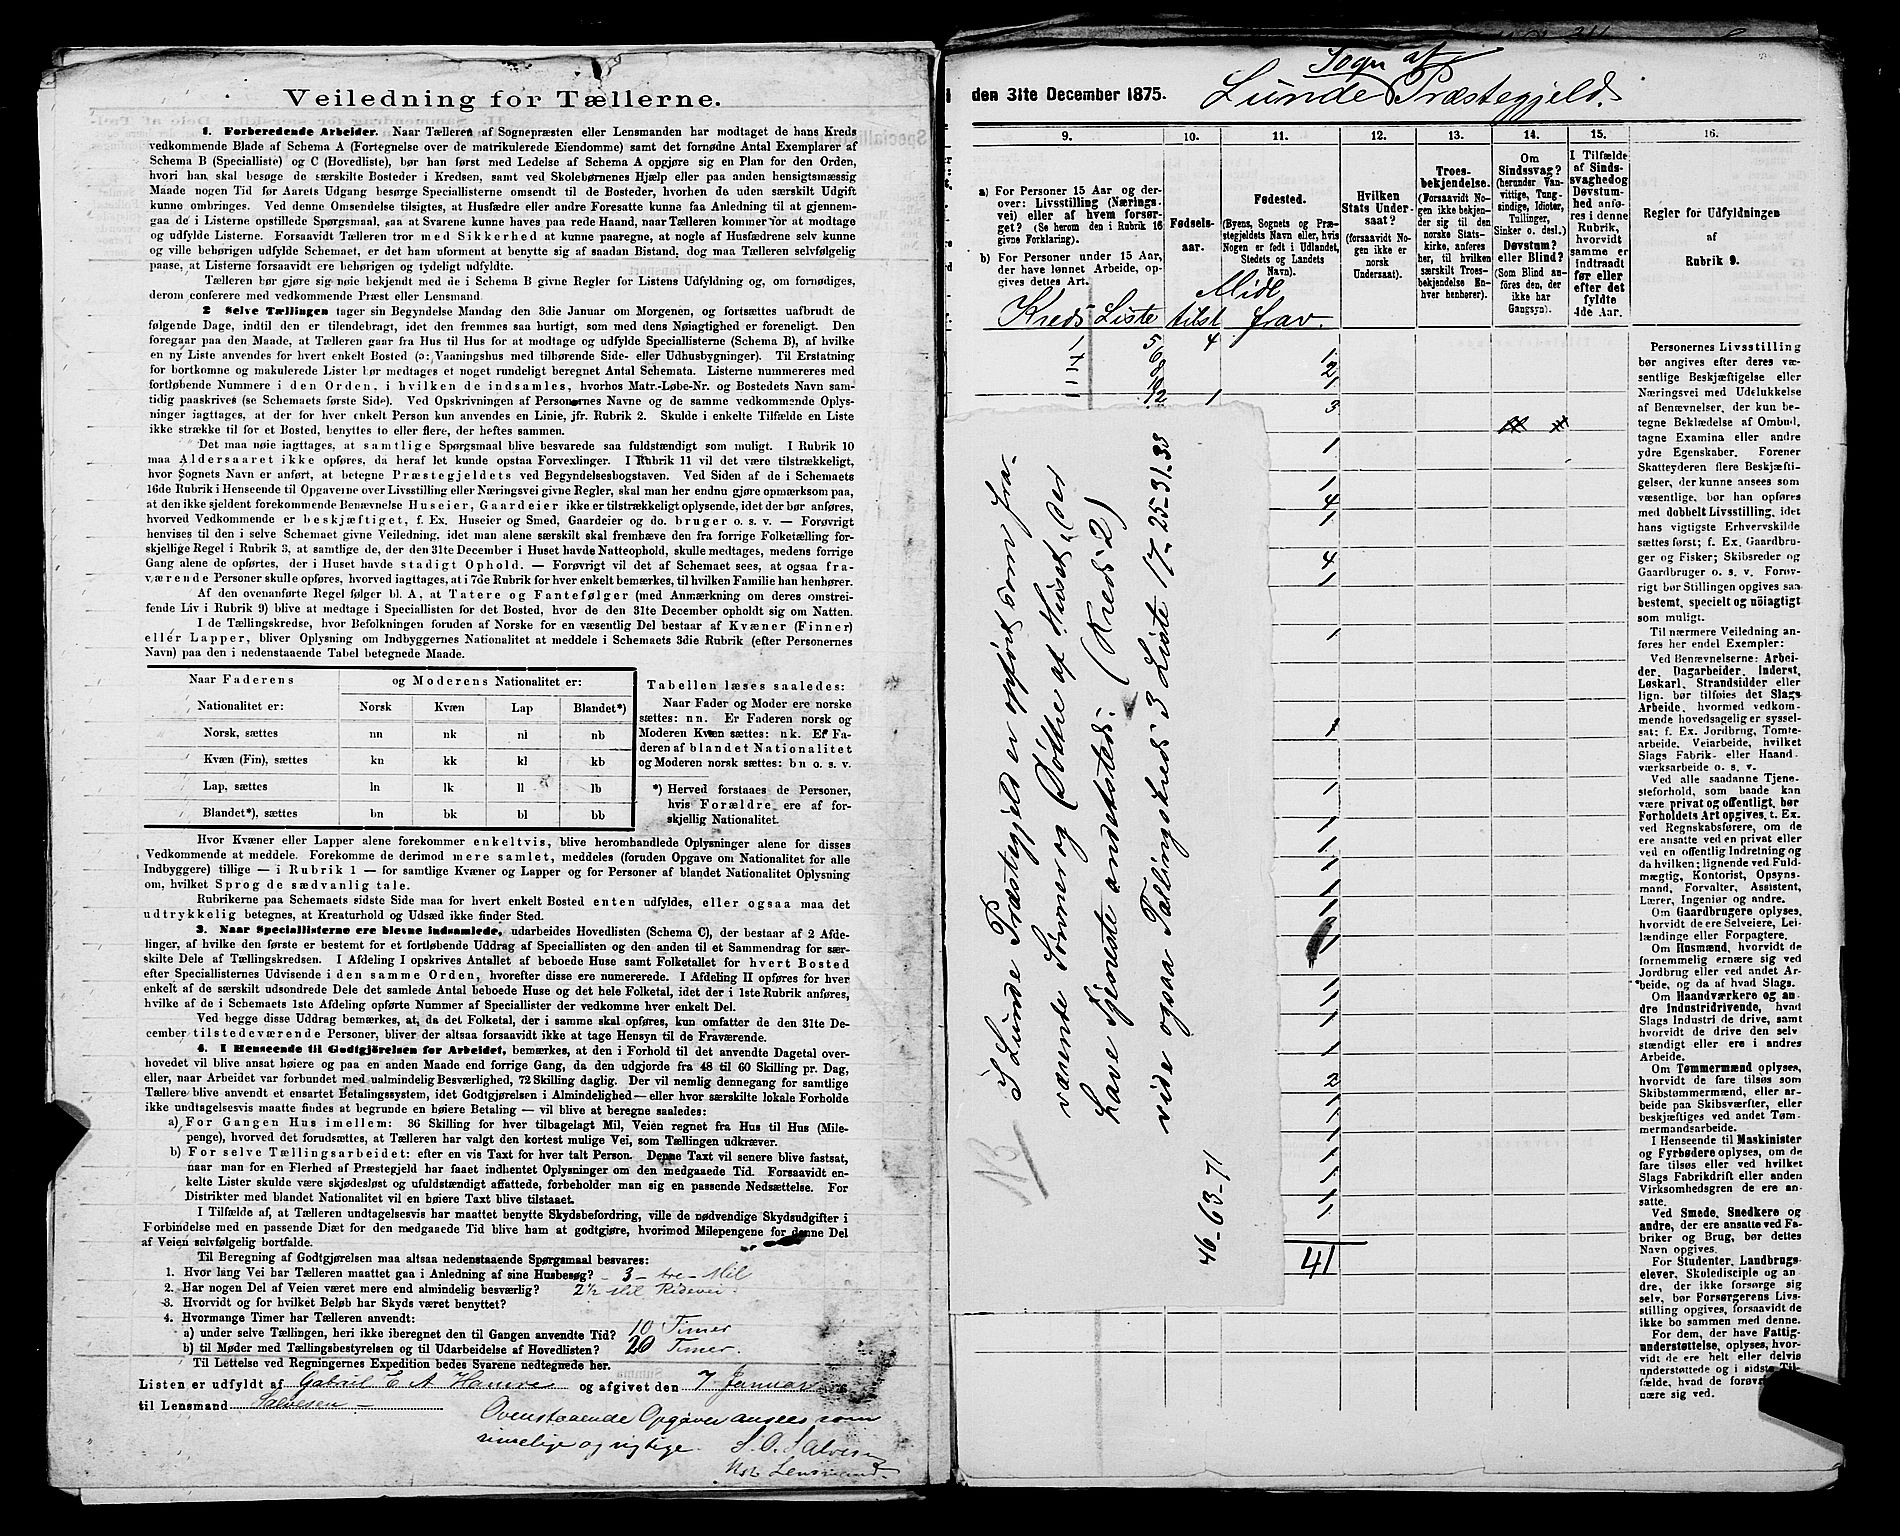 Veiledning for Tællerne.
1. Forberedende Arbeider. Naar Tælleren af Sognepræsten eller Lensmanden har modtaget de hans Kreds
vedkommende Blade af Schema A (Fortegnelse over de matrikulerede Eiendomme) samt det fornødne Antal Exemplarer af
Schema B (Specialliste) og C (Hovedliste), bør han først med Ledelse af Schema A opgjøre sig en Plan for den Orden,
hvori han skal besøge de særskilte Bosteder i Kredsen, samt ved Skolebørnenes Hjælp eller paa anden hensigtsmæssig
Maade nogen Tid før Aarets Udgang besørge Speciallisterne omsendt til de Bosteder, hvorhen de uden særskilt Udgift
kunne ombringes. Ved denne Omsendelse tilsigtes, at Husfædre eller andre Foresatte kunne faa Anledning til at gjennem-
gaa de i Listerne opstillede Spørgsmaal, saa at Svarene kunne haves paa rede Haand, naar Tælleren kommer for at modtage
og udfylde Listerne. Forsaavidt Tælleren tror med Sikkerhed at kunne paaregne, at nogle af Husfædrene selv kunne
og ville behørigen udfylde Schemaet, er det ham uforment at benytte sig af saadan Bistand, dog maa Tælleren selvfølgelig
paase, at Listerne forsaavidt ere behørigen og tydeligt udfyldte.
Tælleren bør gjøre sig nøie bekjendt med de i Schema B givne Regler for Listens Udfyldning og, om fornødiges,
derom conferere med vedkommende Præst eller Lensmand.
2 Selve Tællingen tager sin Begyndelse Mandag den 3die Januar om Morgenen, og fortsættes uafbrudt de
følgende Dage, indtil den er tilendebragt, idet den fremmes saa hurtigt, som med dens Nøiagtighed er foreneligt. Den
foregaar paa den Maade, at Tælleren gaar fra Hus til Hus for at modtage og udfylde Speciallisterne (Schema B), af hvilke
en ny Liste anvendes for hvert enkelt Bosted (ɔ: Vaaningshus med tilhørende Side- eller Udhusbygninger). Til Erstatning
for bortkomne og makulerede Lister bør medtages et noget rundeligt beregnet Antal Schemata. Listerne nummereres med
fortløbende Nummere i den Orden, i hvilken de indsamles, hvorhos Matr.-Løbe-Nr. og Bostedets Navn sam-
tidig paaskrives (se Schemaets første Side). Ved Opskrivningen af Personernes Navne og de samme vedkommende Oplys-
ninger iagttages, at der for hver enkelt Person kun anvendes en Linie, jfr. Rubrik 2. Skulde i enkelte Tilfælde en Liste
ikke strække til for et Bosted, benyttes to eller flere, der heftes sammen.
Det maa nøie iagttages, at samtlige Spørgsmaal blive besvarede saa fuldstændigt som muligt. I Rubrik 10
maa Aldersaaret ikke opføres, da heraf let kunde opstaa Forvexlinger. I Rubrik 11 vil det være tilstrækkeligt,
hvor Sognets Navn er anført, at betegne Præstegjeldets ved Begyndelsesbogstaven. Ved Siden af de i Schemaets
16de Rubrik i Henseende til Opgaverne over Livsstilling eller Næringsvei givne Regler, skal man her endnu gjøre opmærksom paa,
at den ikke sjeldent forekommende Benævnelse Huseier, Gaardeier ikke er tilstrækkeligt oplysende, idet der bør anføres,
hvorved Vedkommende er beskjæftiget, f. Ex. Huseier og Smed, Gaardeier og do. bruger o. s. v. — Forøvrigt
henvises til den i selve Schemaet givne Veiledning, idet man alene særskilt skal fremhæve den fra forrige Folketælling for-
skjellige Regel i Rubrik 3, at samtlige de, der den 31te December i Huset havde Natteophold, skulle medtages, medens forrige
Gang alene de opførtes, der i Huset havde stadigt Ophold. — Forøvrigt vil det af Schemaet sees, at ogsaa fra-
værende Personer skulle opføres, hvorved iagttages, at i 7de Rubrik for hver enkelt bemærkes, til hvilken Familie han henhører.
Af den ovenanførte Regel følger bl. A, at Tatere og Fantefølger (med Anmærkning om deres omstrei-
fende Liv i Rubrik 9) blive at medtage i Speciallisten for det Bosted, hvor de den 31te December opholdt sig om Natten.
I de Tællingskredse, hvor Befolkningen foruden af Norske for en væsentlig Del bestaar af Kvæner (Finner)
eller Lapper, bliver Oplysning om Indbyggernes Nationalitet at meddele i Schemaets 3die Rubrik (efter Personernes
Navn) paa den i nedenstaaende Tabel betegnede Maade.
Naar Faderens og Moderens Nationalitet er:
Nationalitet er: Norsk Kvæn Lap Blandet*)
Norsk, sættes nn nk nl nb
Kvæn (Fin), sættes kn kk kl kb
Lap, sættes ln lk ll lb
Blandet*), sættes bn bk bl bb
Tabellen læses saaledes:
Naar Fader og Moder ere norske
sættes: nn. Er Faderen norsk og
Moderen Kvæn sættes: nk. Er Fa-
deren af blandet Nationalitet
og Moderen norsk sættes: bn o. s. v.
*) Herved forstaaes de Personer,
hvis Forældre ere af for-
skjellig Nationalitet.
Hvor Kvæner eller Lapper alene forekommer enkeltvis, blive heromhandlede Oplysninger alene for disses
Vedkommende at meddele. Forekomme de derimod mere samlet, meddeles (foruden Opgave om Nationalitet for alle
Indbyggere) tillige — i Rubrik 1 — for samtlige Kvæner og Lapper og for Personer af blandet Nationalitet Oplysning
om, hvilket Sprog de sædvanlig tale.
Rubrikerne paa Schemaets sidste Side maa for hvert enkelt Bosted enten udfyldes, eller ogsaa maa det
udtrykkelig betegnes, at Kreaturhold og Udsæd ikke finder Sted.
3. Naar Speciallisterne ere blevne indsamlede, udarbeides Hovedlisten (Schema C), der bestaar af 2 Afde-
linger, af hvilke den første er bestemt for et fortløbende Uddrag af Speciallisten og den anden til et Sammendrag for sær-
skilte Dele af Tællingskredsen. I Afdeling I opskrives Antallet af beboede Huse samt Folketallet for hvert Bosted
efter Speciallisternes Udvisende i den samme Orden, hvorefter disse ere numererede. I Afdeling II opføres for hver
enkelt af de særskilt udsondrede Dele det samlede Antal beboede Huse og det hele Folketal, idet der i 1ste Rubrik anføres,
hvilke af de i Schemaets 1ste Afdeling opførte Nummer af Speciallister der vedkomme hver enkelt Del.
Ved begge disse Uddrag bemærkes, at, da det Folketal, der i samme skal opføres, kun omfatter de den 31te De-
cember tilstedeværende Personer, bliver der altsaa forsaavidt ikke at tage Hensyn til de Fraværende.
4. I Henseende til Godtgjörelsen for Arbeidet, bemærkes, at den i Forhold til det anvendte Dagetal over-
hovedet vil blive ansat høiere og paa en anden Maade end forrige Gang, da den udgjorde fra 48 til 60 Skilling pr. Dag,
eller, naar Arbeidet var forbundet med ualmindelig Besværlighed, 72 Skilling daglig. Der vil nemlig dennegang for samtlige
Tællere blive anvendt et ensartet Betalingssystem, idet Godtgjørelsen i Almindelighed — eller hvor særskilte lokale Forholde
ikke undtagelsesvis maatte findes at begrunde en høiere Betaling — vil blive at beregne saaledes:
a) For Gangen Hus imellem: 36 Skilling for hver tilbagelagt Mil, Veien regnet fra Hus til Hus (Mile-
penge), hvorved det forudsættes, at Tælleren har valgt den kortest mulige Vei, som Tællingen udkræver.
b) For selve Tællingsarbeidet: efter en vis Taxt for hver talt Person. Denne Taxt vil senere blive fastsat,
naar man for en Flerhed af Præstegjeld har faaet indhentet Oplysninger om den medgaaede Tid. Forsaavidt en-
kelte Lister skulde være skjødesløst og ufuldstændigt affattede, forbeholder man sig en passende Nedsættelse. For
Distrikter med blandet Nationalitet vil en høiere Taxt blive tilstaaet.
I Tilfælde af, at Tælleren undtagelsesvis har maattet benytte Skydsbefordring, ville de nødvendige Skydsudgifter i
Forbindelse med en passende Diæt for den medgaaede Tid blive ham at godtgjøre, hvorimod Milepengene for denne Del
af Veien selvfølgelig bortfalde.
Til Beregning af Godtgjørelsen maa altsaa nedenstaaende Spørgsmaal besvares:
1. Hvor lang Vei har Tælleren maattet gaa i Anledning af sine Husbesøg? - 3 - tre Mil
2. Har nogen Del af Veien været mere end almindelig besværlig? 2½ Mil Rideveı.
3. Hvorvidt og for hvilket Beløb har Skyds været benyttet?
4. Hvormange Timer har Tælleren anvendt:
a) under selve Tællingen, heri ikke iberegnet den til Gangen anvendte Tid? 10 Timer
b) til Møder med Tællingsbestyrelsen og til Udarbeidelse af Hovedlisten? 20 Timer.
Til Lettelse ved Regningernes Expedition bedes Svarene nedtegnede her.
Listen er udfyldt af Gabriel E A Hamre og afgivet den 7 Januar
til Lensmand Salvesen -
Ovenstaaende Opgaver ansees som
rimelige og rigtige. S. O. Salvesen
Lensmand
den 31te December 1875. Sogn af
Lunde Præstegjeld.
9. 10. 11. 12. 13. 14. 15. 16.
a) For Personer 15 Aar og der-
over: Livsstilling (Nærings-
vei) eller af hvem forsør-
get? (Se herom den i Rubrik 16
givne Forklaring).
b) For Personer under 15 Aar,
der have lønnet Arbeide, op-
gives dettes Art.
Fødsels-
aar.
Fødested.
(Byens, Sognets og Præ-
stegjeldets Navn eller, hvis
Nogen er født i Udlandet,
Stedets og Landets
Navn).
Hvilken
Stats Under-
saat?
(forsaavidt No-
gen ikke er
norsk
Undersaat).
Troes-
bekjendelse.
(Forsaavidt No-
gen ikke bekjen-
der sig til den
norske Stats-
kirke, anføres
her, til hvilken
særskilt Troes-
bekjendelse En-
hver henhører).
Om
Sindssvag?
(herunder Van-
vittige, Tung-
sindige, Idioter,
Tullinger,
Sinker o. desl.)
Døvstum?
eller Blind?
(Som Blind an-
føres den, der
ikke har
Gangsyn).
I Tilfælde
af Sinds-
svaghed og
Døvstum-
hed anfø-
res i denne
Rubrik,
hvorvidt
samme er
indtraadt
før eller
efter det
fyldte
4de Aar.
Regler for Udfyldningen
af
Rubrik 9.
Midl
Kreds Liste tilst frav.
1 5 4
6 1
8 2
10 1
12 1 3
1
1
4
1
4
1
1
1
1
1
1
1
1
1
1
1
1
1
2
1
1
1
1
1
1
41
NB I Lunde Præstegjeld er opført som fra-
værende Sønner og Døttre af Huset, der
have tjeneste andetsteds. (Kreds 2)
vide ogsaa Tællingskreds 3 Liste 17-25-31-33
46-63-71
Personernes Livsstilling
bør angives efter deres væ-
sentlige Beskjæftigelse eller
Næringsvei med Udelukkelse
af Benævnelser, der kun be-
tegne Beklædelse af Ombud,
tagne Examina eller andre
ydre Egenskaber. Forener
Skatteyderen flere Beskjæfti-
gelser, der kunne ansees som
væsentlige, bør han opføres
med dobbelt Livsstilling, idet
hans vigtigste Erhvervskilde
sættes først; f. Ex. Gaardbru-
ger og Fisker; Skibsreder og
Gaardbruger o. s. v. Forøv-
rigt bør Stillingen opgives saa
bestemt, specielt og nöiagtigt
som muligt.
Til nærmere Veiledning an-
føres her endel Exempler:
Ved Benævnelserne: Arbei-
der, Dagarbeider, Inderst,
Løskarl, Strandsidder eller
lign. bør tilføies det Slags
Arbeide, hvormed vedkom-
mende hovedsagelig er syssel-
sat; f. Ex. Jordbrug, Tømte-
arbeide, Veiarbeide, hvilket
Slags Fabrik- eller Haand-
værksarbeide o. s. v.
Ved alle saadanne Tjene-
steforhold, som baade kan
være privat og offentligt, bør
Forholdets Art opgives, t. Ex.
ved Regnskabsførere, om de
ere ansatte ved en privat eller
ved en offentlig Indretning og
da hvilken; lignende ved Fuld-
mægtig, Kontorist, Opsyns-
mand, Forvalter, Assistent,
Lærer, Ingeniør og andre.
Om Gaardbrugere oplyses,
hvorvidt de ere Selveiere, Lei-
lændinge eller Forpagtere.
Om Husmænd, hvorvidt de
fornemmelig ernære sig ved
Jordbrug eller ved andet Ar-
beide, og da af hvad Slags.
Om Haandværkere og an-
dre Industridrivende, hvad
Slags Industri de drive, samt
hvorvidt de drive den selv-
stændigt eller ere i andres
Arbeide.
Om Tømmermænd oplyses,
hvorvidt de fare tilsøs som
Skibstømmermænd, eller ar-
beide paa Skibsværfter, eller
beskjæftiges ved andet Tøm-
mermandsarbeide.
I Henseende til Maskinister
og Fyrbødere oplyses, om de
fare tilsøs eller ved hvilket
Slags Fabrikdrift eller anden
Virksomhedsgren de ere an-
satte.
Ved Smede, Snedkere og
andre, der ere ansatte ved Fa-
briker og Brug, bør dettes
Navn opgives.
For Studenter, Landbrugs-
elever, Skoledisciple og an-
dre, der ikke forsørge sig
selv, bør Forsørgerens Livs-
stilling opgives, forsaavidt de
ikke bo sammen med denne.
For dem, der have Fattig-
understøttelse, oplyses, hvor-
vidt de ere helt eller delvis
understøttede og i sidste Til-
fælde, hvad de forøvrigt er-
nære sig ved.